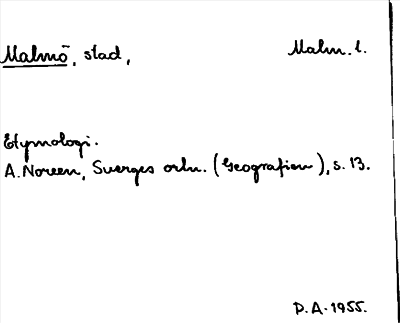 Malmö, stad, Malm. l.
Etymologi.
A. Noreen, Sverges ortn. (Geografien), s. 13.
P.A. 1955.